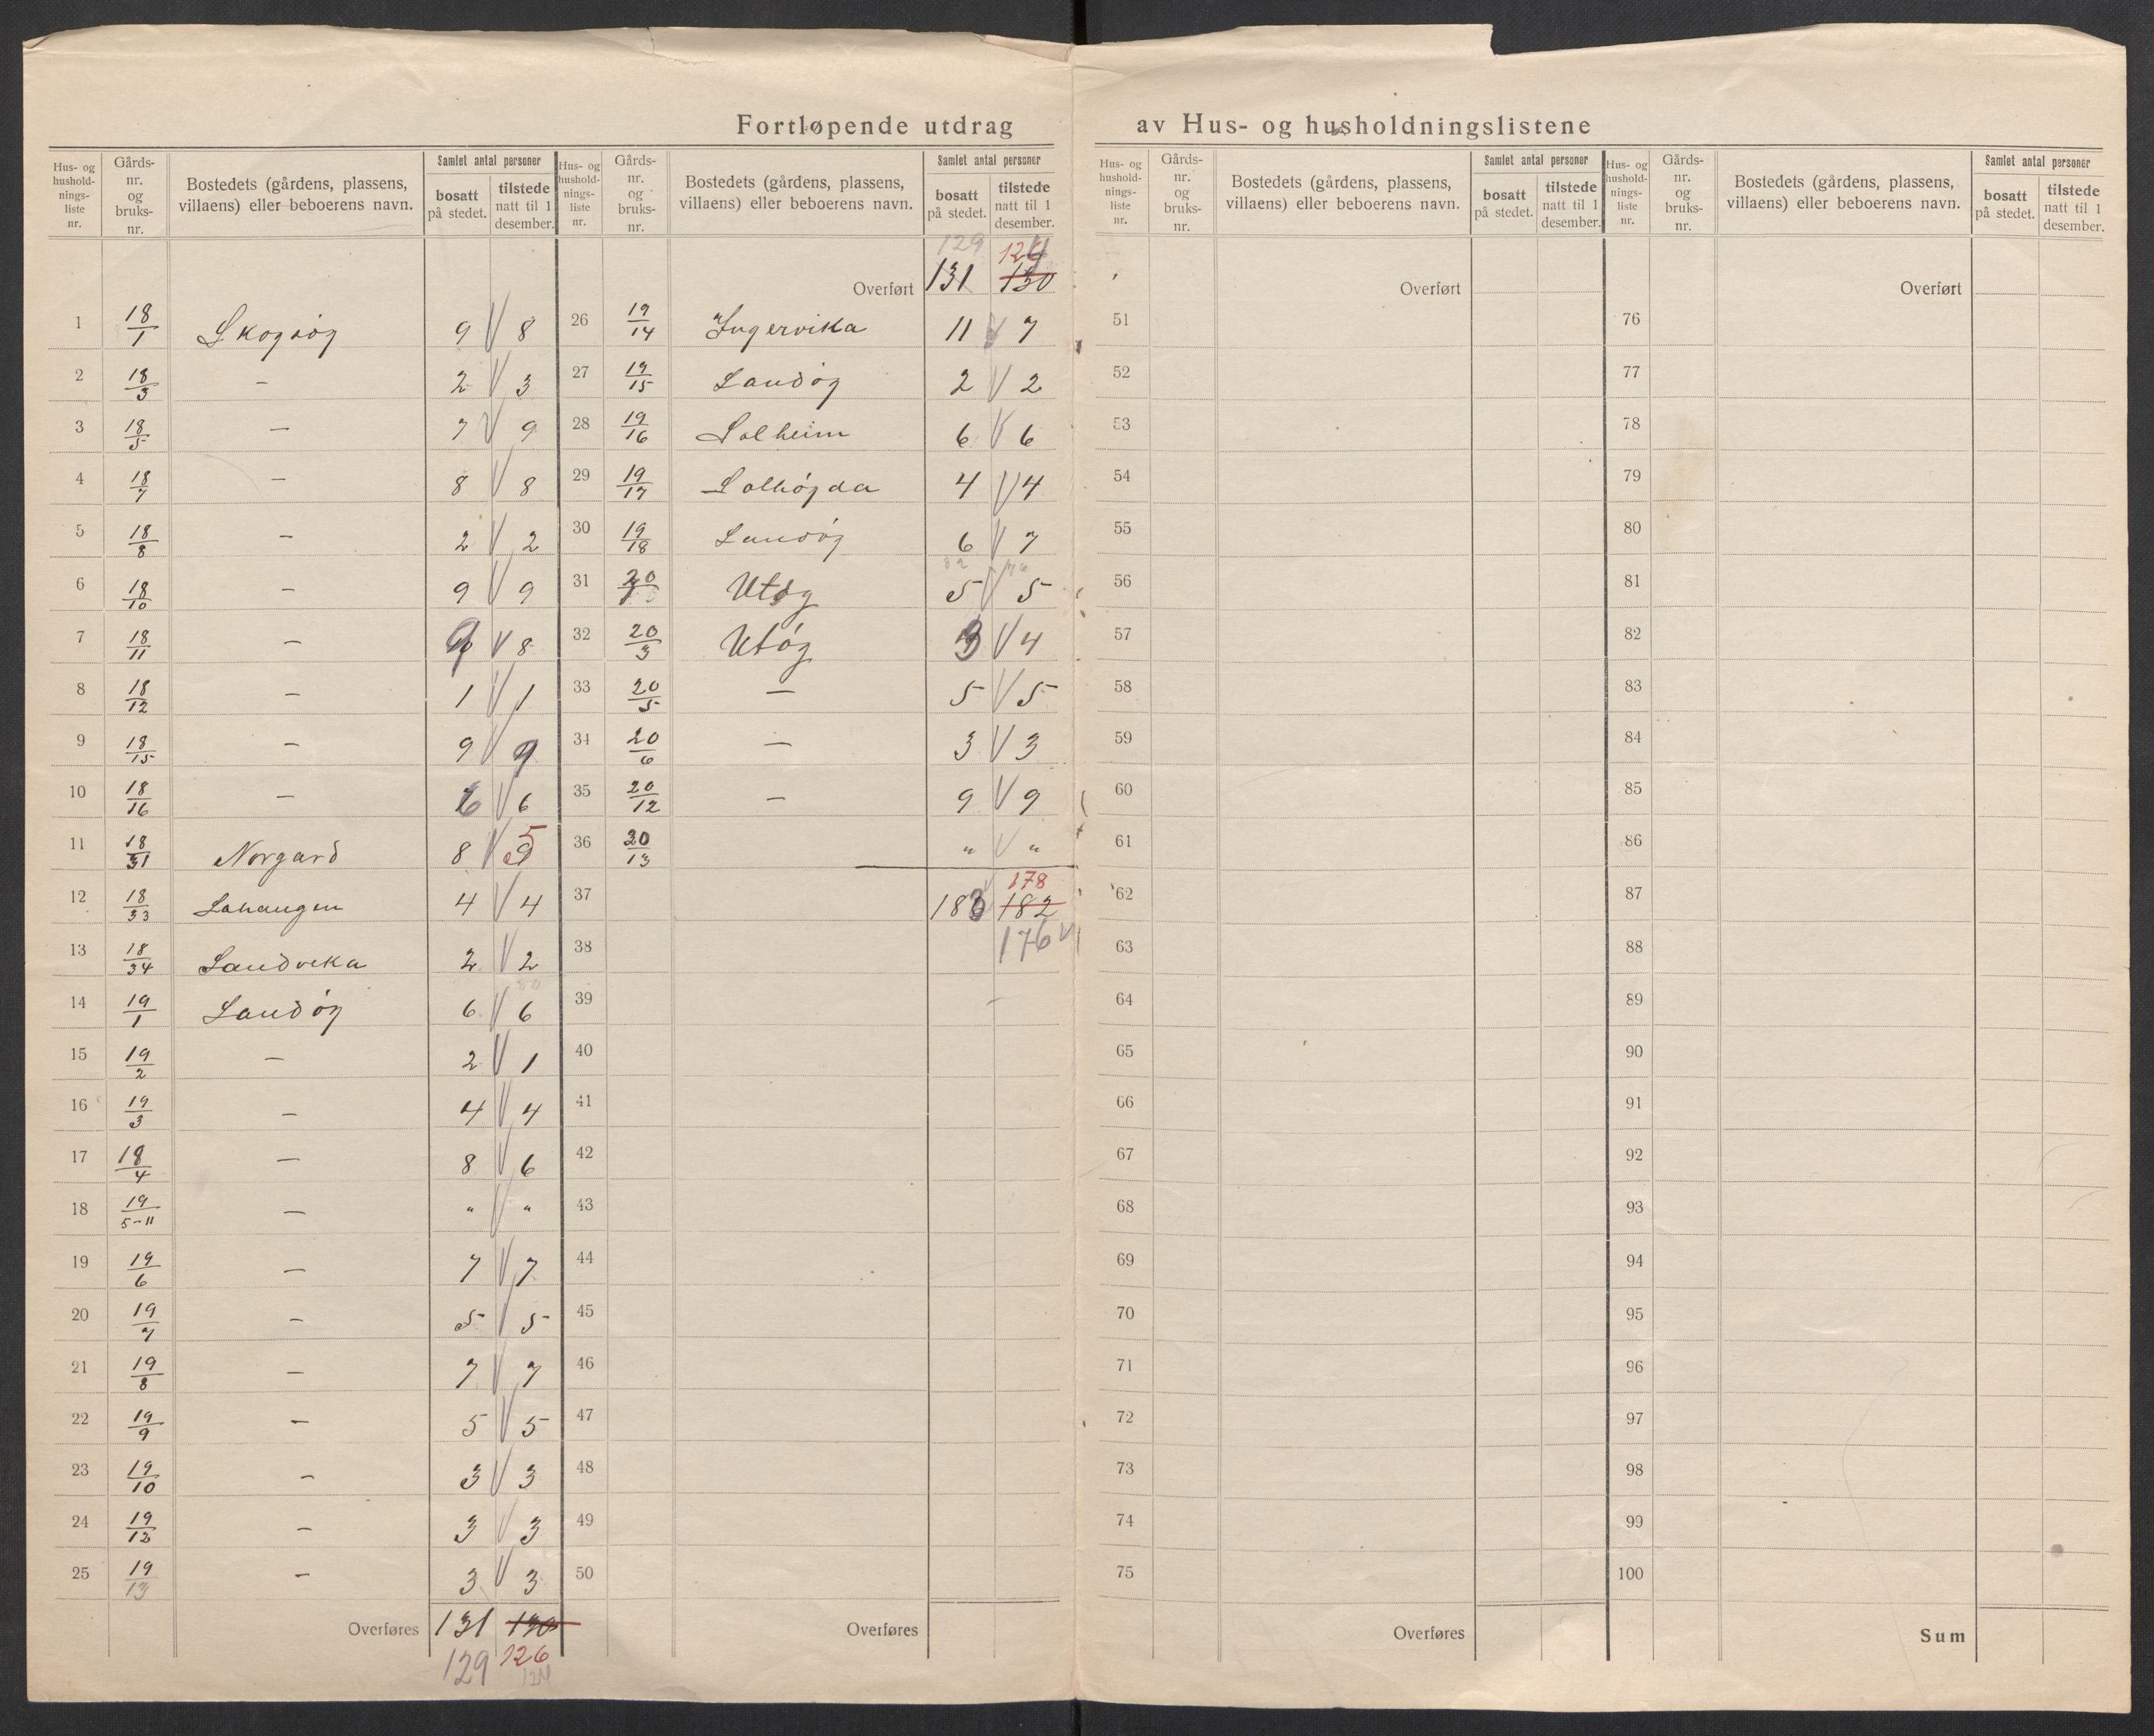 Fortløpende utdrag av Hus- og husholdningslistene
Hus- og hushold- nings- liste nr. | Gårds- nr. og bruks- nr. | Bostedets (gårdens, plassens, villaens) eller beboerens navn. | Samlet antal personer | bosatt på stedet. | tilstede natt til 1 desember.
1 18/1 Skogsøy 9 8
2 18/3 — 2 3
3 18/5 — 7 9
4 18/7 — 8 8
5 18/8 — 2 2
6 18/10 — 9 9
7 18/11 — 9 8
8 18/12 — 1 1
9 18/15 — 9 9
10 18/16 — 6 6
11 18/31 Norgard 8 5
12 18/33 4 4
13 18/34 Sandvika 2 2
14 19/1 Sandøy 6 6
15 19/2 — 2 1
16 19/3 — 4 4
17 18/4 — 8 6
18 19/5-11 — " "
19 19/6 — 7 7
20 19/7 — 5 5
21 19/8 — 7 7
22 19/9 — 5 5
23 19/10 — 3 3
24 19/12 — 3 3
25 19/13 — 3 3
Overføres 131 130
129 126
Hus- og hushold- nings- liste nr. | Gårds- nr. og bruks- nr. | Bostedets (gårdens, plassens, villaens) eller beboerens navn. | Samlet antal personer | bosatt på stedet. | tilstede natt til 1 desember.
129
Overført 131 130
26 19/14 Ingervika 11 7
27 19/15 Sandøy 2 2
28 19/16 Solheim 6 6
29 19/17 Solhøgda 4 4
30 19/18 Sandøy 6 7
31 Utøy 5 5
32 20/3 Utøy 3 4
33 20/5 — 5 5
34 20/6 — 3 3
35 20/12 — 9 9
36 20/13 " "
178
37 183 182
38 176
39
40
41
42
43
44
45
46
47
48
49
50
Overføres
Hus- og hushold- nings- liste nr. | Gårds- nr. og bruks- nr. | Bostedets (gårdens, plassens, villaens) eller beboerens navn. | Samlet antal personer | bosatt på stedet. | tilstede natt til 1 desember.
Overført
51
52
53
54
55
56
57
58
59
60
61
62
63
64
65
66
67
68
69
70
71
72
73
74
75
Overføres
Hus- og hushold- nings- liste nr. | Gårds- nr. og bruks- nr. | Bostedets (gårdens, plassens, villaens) eller beboerens navn. | Samlet antal personer | bosatt på stedet. | tilstede natt til 1 desember.
Overført
76
77
78
79
80
81
82
83
84
85
86
87
88
89
90
91
92
93
94
95
96
97
98
99
100
Sum